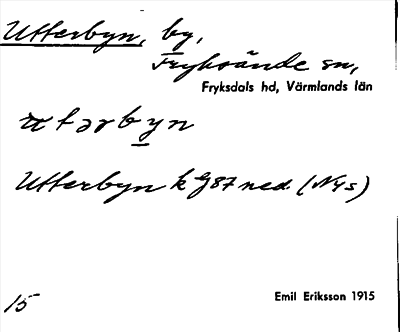 Utterbyn, by,
Fryksände sn,
Fryksdals hd, Värmlands län
Utterbyn k
ned.
15
Emil Eriksson 1915